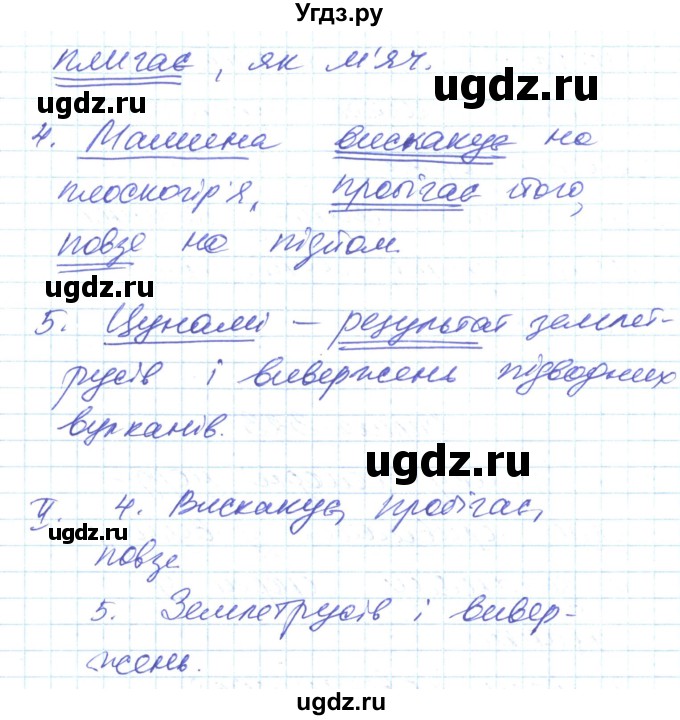 Угдз.ру
плигає, як м'яч.
ugdz.ru
ugdz.ru
4. Машина вискакує на
плоскогір'я, пробігає його,
ugdz.ru
повзе на підйом.
ugdz.ru
ugdz.ru
5. Цунамі – результат землет-
русів і вивержень підводних
вулканів.
ugdz.ru
II. 4. Вискакує, пробігає,
ugdz.ru
повзе
ugdz.ru
5. Землетрусів і вивер-
жень.
ugdz.ru